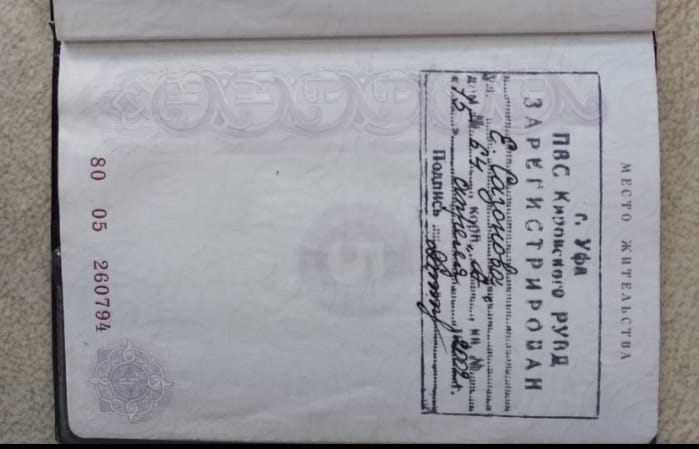 МЕСТО ЖИТЕЛЬСТВА
г. УФА
ПВС Кировского РУВД
ЗАРЕГИСТРИРОВАН
ул. Е. Сазонова
дом № 64 корп. кв №
« 15 » 2002 г.
Подпись
80 05 260794
5